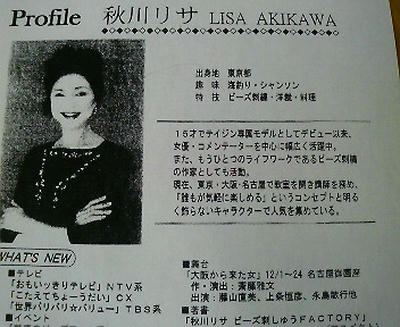 Profile 秋川リサ LISA AKIKAWA
出身地 東京都
趣 味 海釣り・シャンソン
特 技 ビーズ刺繍・洋裁・料理
15才でテイジン専属モデルとしてデビュー以来、
女優・コメンテーターを中心に幅広く活躍中。
また、もうひとつのライフワークであるビーズ刺繍
の作家としても活動。
現在、東京・大阪・名古屋で教室を開き講師を務め、
「誰もが気軽に楽しめる」というコンセプトと明る
く飾らないキャラクターで人気を集めている。
WHAT'S NEW
■テレビ
「おもいッきりテレビ」NTV系
「こたえてちょーうだい」CX
「世界バリバリ☆バリュー」TBS系
■イベント
■舞台
「大阪から来た女」12/1〜24 名古屋御園座
作・演出:斎藤雅文
出演:藤山直美、上条恒彦、永島敏行他
■著書
「秋川リサ ビーズ刺しゅうFACTORY」